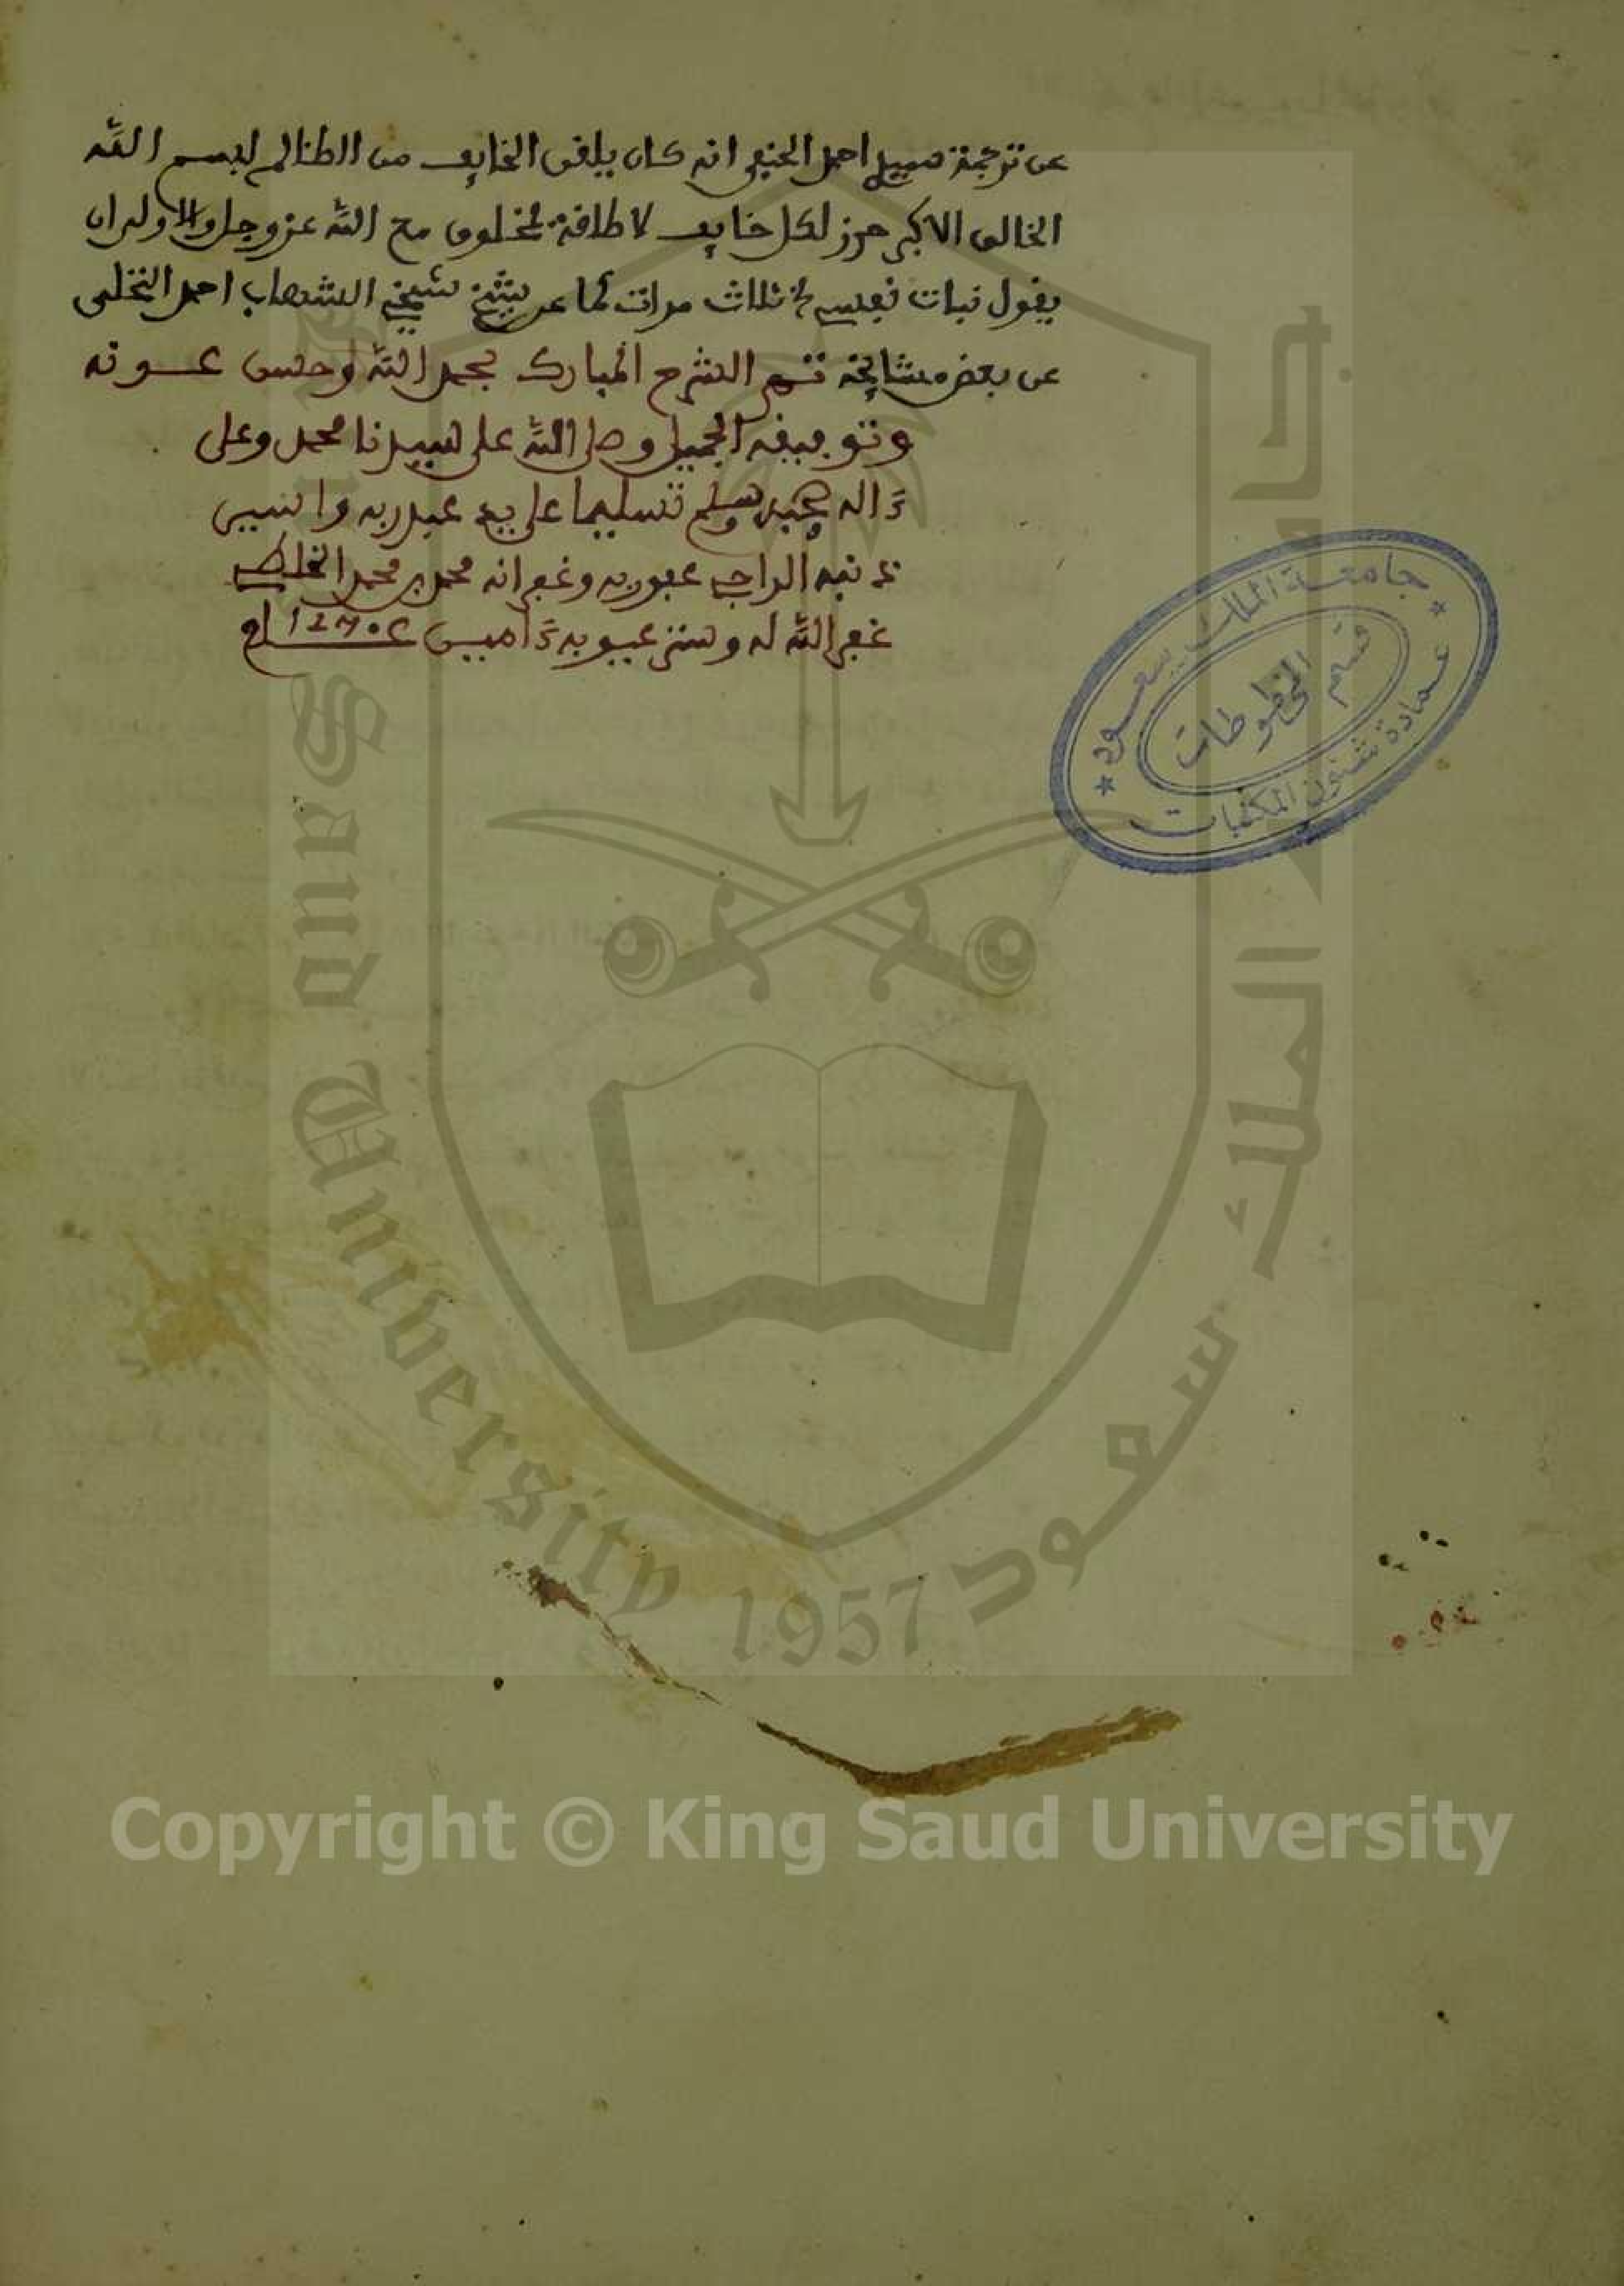 عن ترجمة سيدي احمد الحنفي انه كان يلقن الخايف من الظالم لبسم الله
الخالق الاكبر حرز لكل خايف لا طاقة لمخلوق مع الله عز وجل والاولى ان
يقول نبات نفسه ثلاث مرات كما عن شيخ شيخي الشهاب احمد النخلي
عن بعض مشايخه تم الشرح المبارك بحمد الله وحسن عونه
وتوفيقه الجميل وصلى الله على سيدنا محمد وعلى
ءاله وصحبه وسلم تسليما على يد عبد ربه واسير
ذنبه الراجي عفو ربه وغفرانه محمد بن محمد
غفر الله له وستر عيوبه ءامين
جامعة الملك سعود
قسم المخطوطات
عمادة شئون المكتبات
جامعة الملك سعود
King Saud University 1957
Copyright © King Saud University